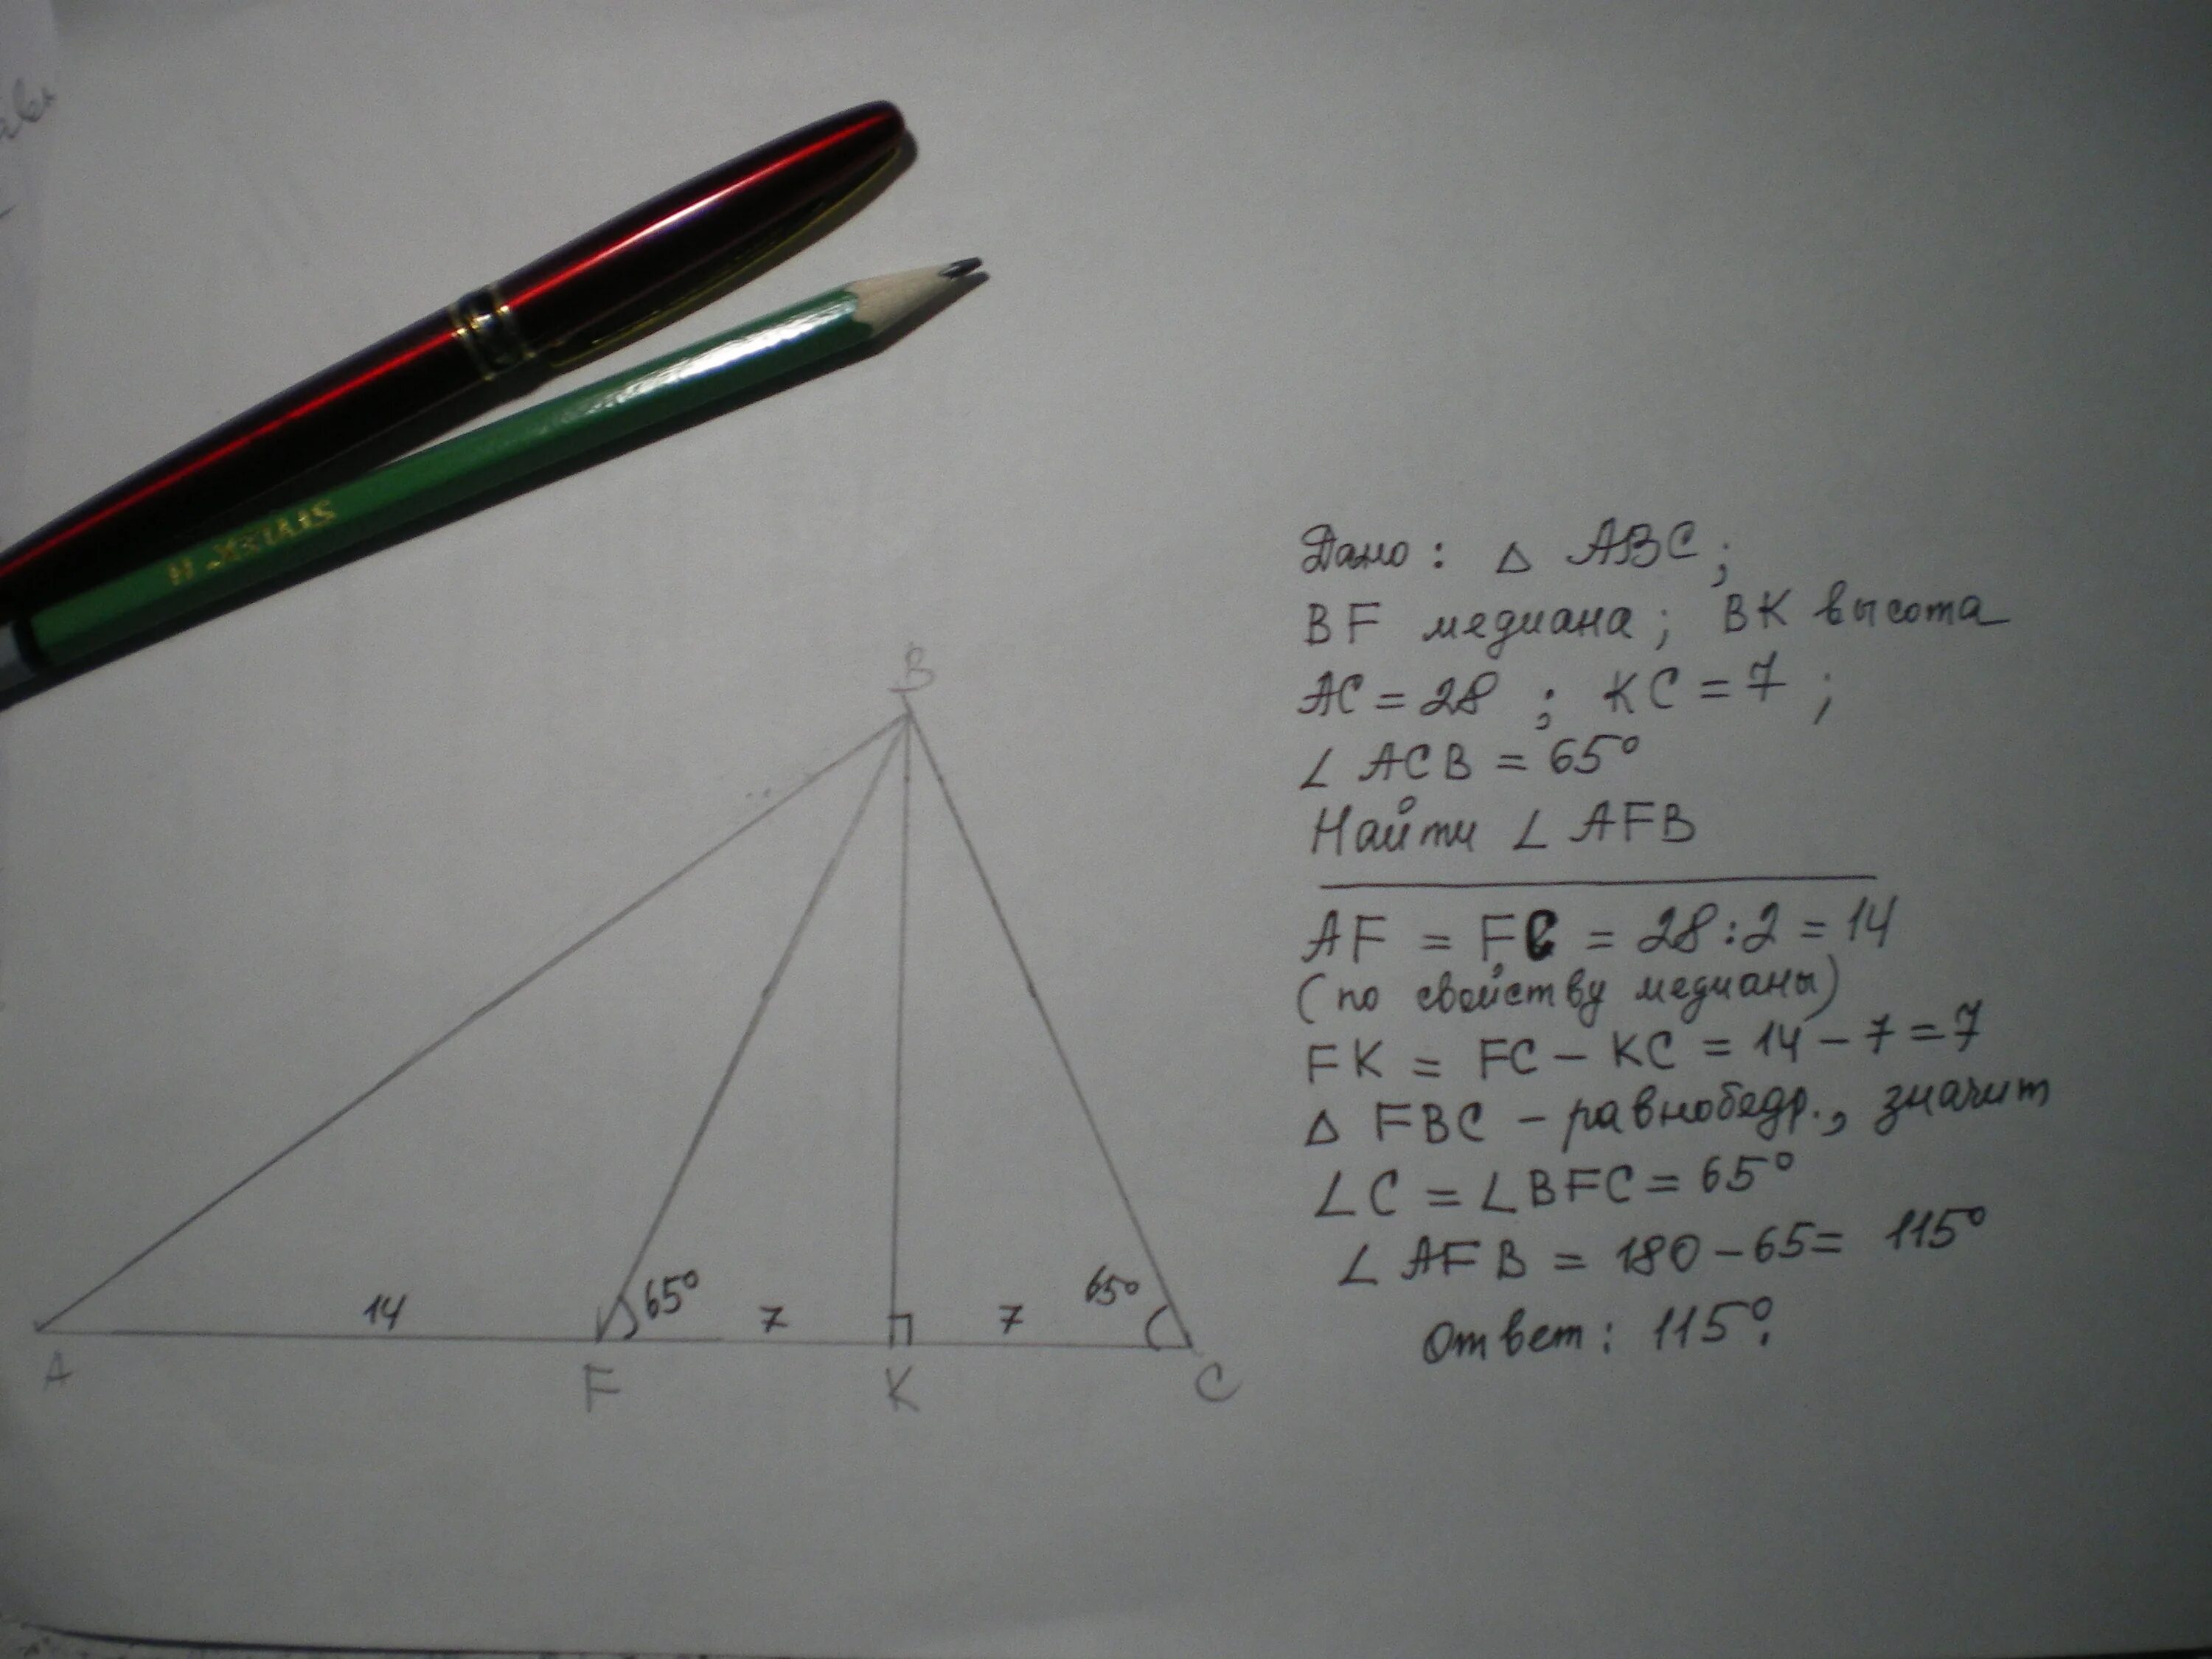 B
A
F
K
C
14
65°
7
7
65°
Дано: △ ABC;
BF медиана; BK высота
AC = 28 ; KC = 7 ;
∠ ACB = 65°
Найти ∠ AFB
AF = FC = 28:2 = 14
(по свойству медианы)
FK = FC – KC = 14 – 7 = 7
△ FBC – равнобедр., значит
∠C = ∠BFC = 65°
∠ AFB = 180 – 65 = 115°
Ответ: 115°.